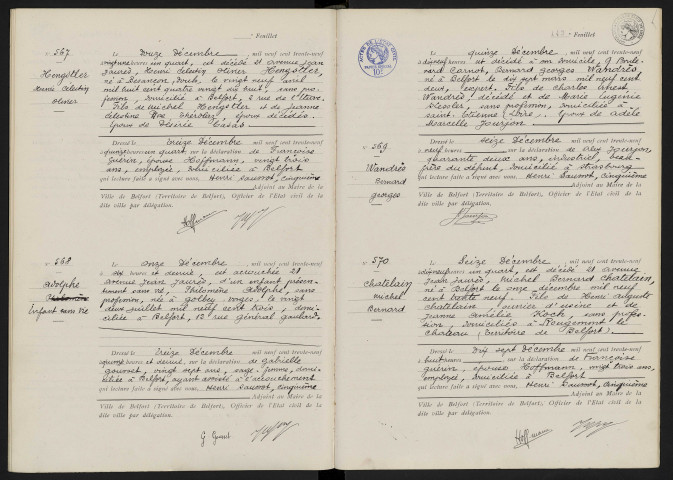 Feuillet
N° 567
Hengstler
Henri Celestin
Olivier
Le douze Décembre, mil neuf cent trente-neuf
un quart, est décédé 21 avenue Jean
Jaurès, Henri Celestin Olivier Hengstler,
né à Besançon, Doubs, le vingt neuf avril
mil huit cent quatre vingt dix huit, sans pro-
fession, domicilié à Belfort, 2 rue de l'Étuve.
Fils de Michel Hengstler et de Jeanne
Celestine, époux décédés.
Époux de Désirée
Dressé le treize Décembre, mil neuf cent trente-neuf
un quart, sur la déclaration de Françoise
Guérin, épouse Hoffmann, vingt trois
ans, employée, domiciliée à Belfort
qui lecture faite a signé avec nous, Henri Saunot, cinquième
Adjoint au Maire de la
Ville de Belfort (Territoire de Belfort), Officier de l'Etat civil de la
dite ville par délégation.
Hoffmann
N° 568
Adolphe
Enfant sans vie
Le onze Décembre, mil neuf cent trente-neuf
heures et demie, est accouchée 21
avenue Jean Jaurès, d'un enfant présen-
tement sans vie, Philomène Adolphe, sans
profession, née à Golbey, Vosges, le vingt
deux juillet mil neuf cent trois, domi-
ciliée à Belfort, 12 rue général
Dressé le treize Décembre, mil neuf cent trente-neuf
heures et demie, sur la déclaration de Gabrielle
vingt sept ans, sage-femme, domi-
ciliée à Belfort, ayant assisté à l'accouchement
qui lecture faite a signé avec nous, Henri Saunot, cinquième
Adjoint au Maire de la
Ville de Belfort (Territoire de Belfort), Officier de l'Etat civil de la
dite ville par délégation.
Feuillet
N° 569
Wandrès
Bernard
Georges
Le quinze Décembre, mil neuf cent trente-neuf
heures est décédé à son domicile, 9 Boule-
vard Carnot, Bernard Georges Wandrès,
né à Belfort le dix sept mars mil neuf cent
deux, expert. Fils de Charles
Wandrès, décédé et de Marie Eugénie
sans profession, domiciliée à
Saint-Etienne (Loire). Époux de Adèle
Marcelle Jourjon
Dressé le seize Décembre, mil neuf cent trente-neuf
neuf heures, sur la déclaration de Jourjon,
quarante deux ans, industriel, beau-
frère du défunt, domicilié à Strasbourg
qui lecture faite a signé avec nous, Henri Saunot, cinquième
Adjoint au Maire de la
Ville de Belfort (Territoire de Belfort), Officier de l'Etat civil de la
dite ville par délégation.
N° 570
Chatelain
Michel
Bernard
Le seize Décembre, mil neuf cent trente-neuf
un quart, est décédé 21 avenue
Jean Jaurès, Michel Bernard Chatelain,
né à Belfort le onze décembre mil neuf
cent trente neuf. Fils de Henri Auguste
Chatelain, ouvrier d'usine et de
Jeanne Amélie Koch, sans profes-
sion, domiciliés à Rougemont le
Château (Territoire de Belfort).
Dressé le dix sept Décembre, mil neuf cent trente-neuf
heures, sur la déclaration de Françoise
Guérin, épouse Hoffmann, vingt trois ans,
employée, domiciliée à Belfort
qui lecture faite a signé avec nous, Henri Saunot, cinquième
Adjoint au Maire de la
Ville de Belfort (Territoire de Belfort), Officier de l'Etat civil de la
dite ville par délégation.
Hoffmann